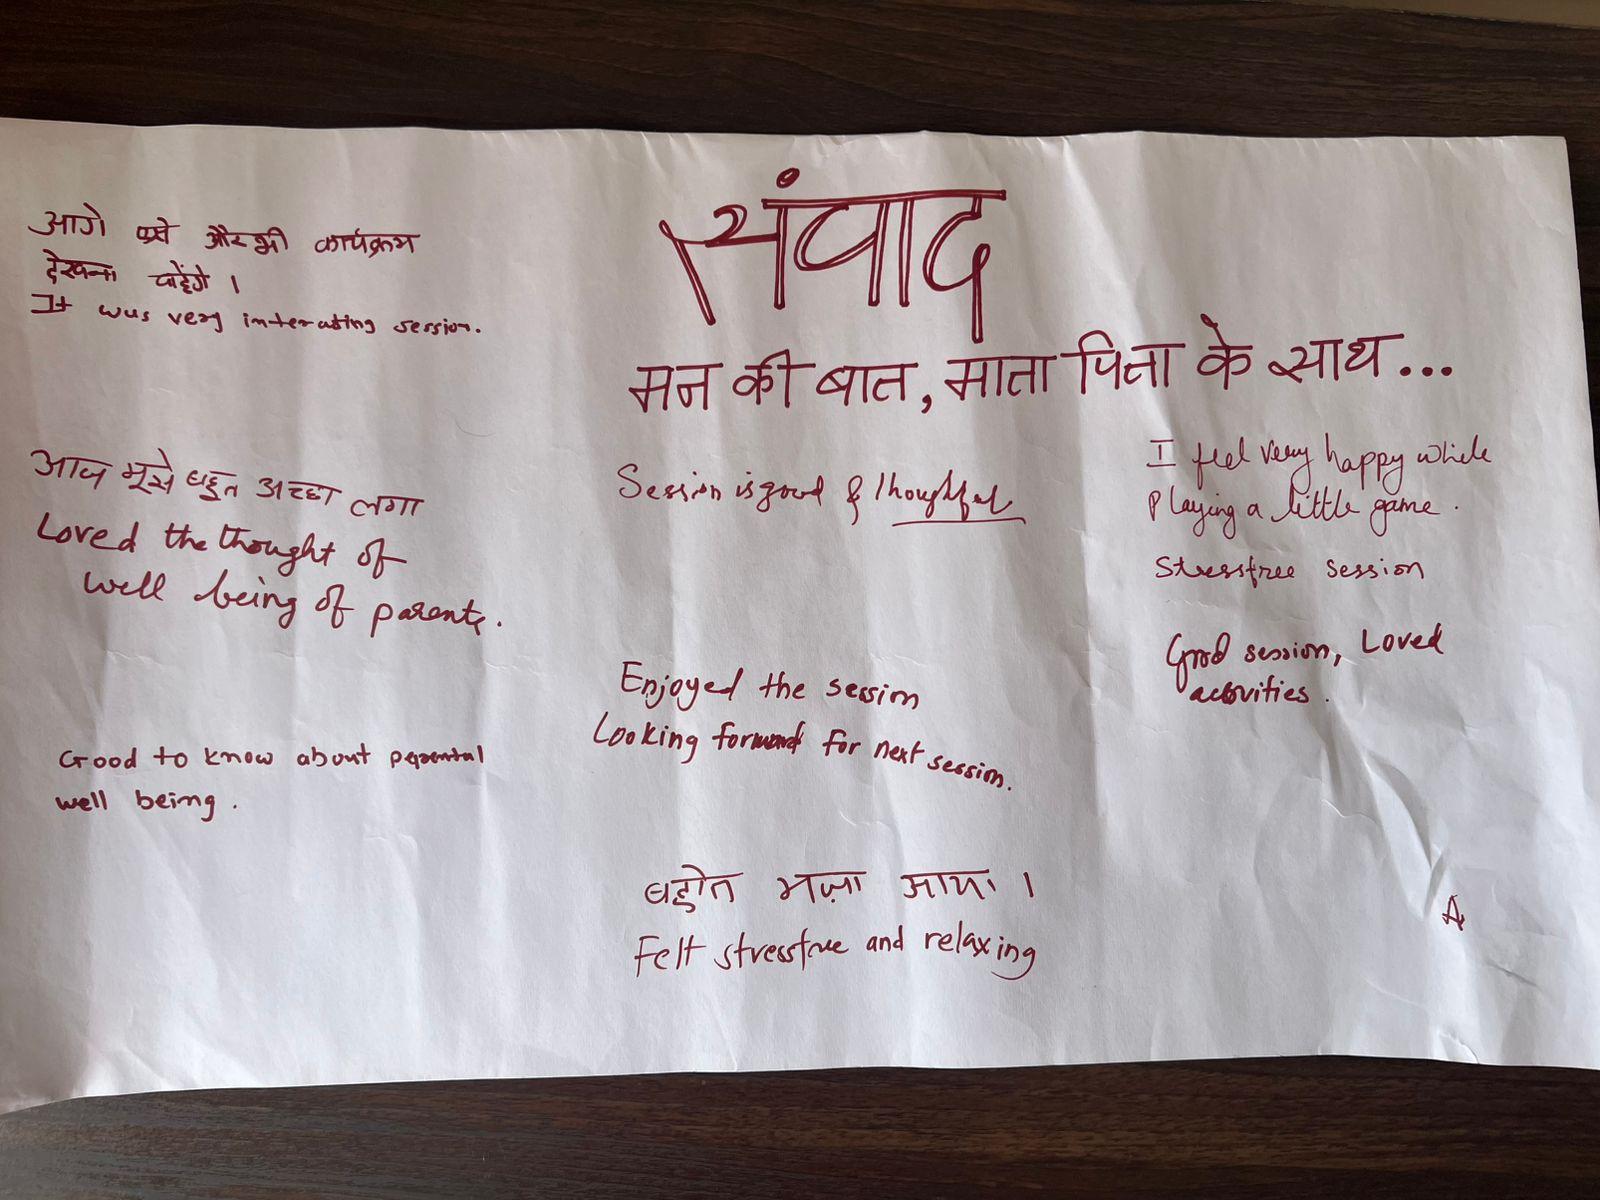 संवाद
मन की बात, माता पिता के साथ...
आगे और भी कार्यक्रम
देखना चाहेंगे ।
It was very interating session.
आज मूसे बहुत अच्छा लगा
Loved the thought of
well being of parents.
Good to know about parental
well being.
Session is good & thoughtful
Enjoyed the session
Looking forward for next session.
बहोत मज़ा आया ।
Felt stressfree and relaxing
I feel very happy while
playing a little game.
Stressfree session
Good session, Loved
activities.
A